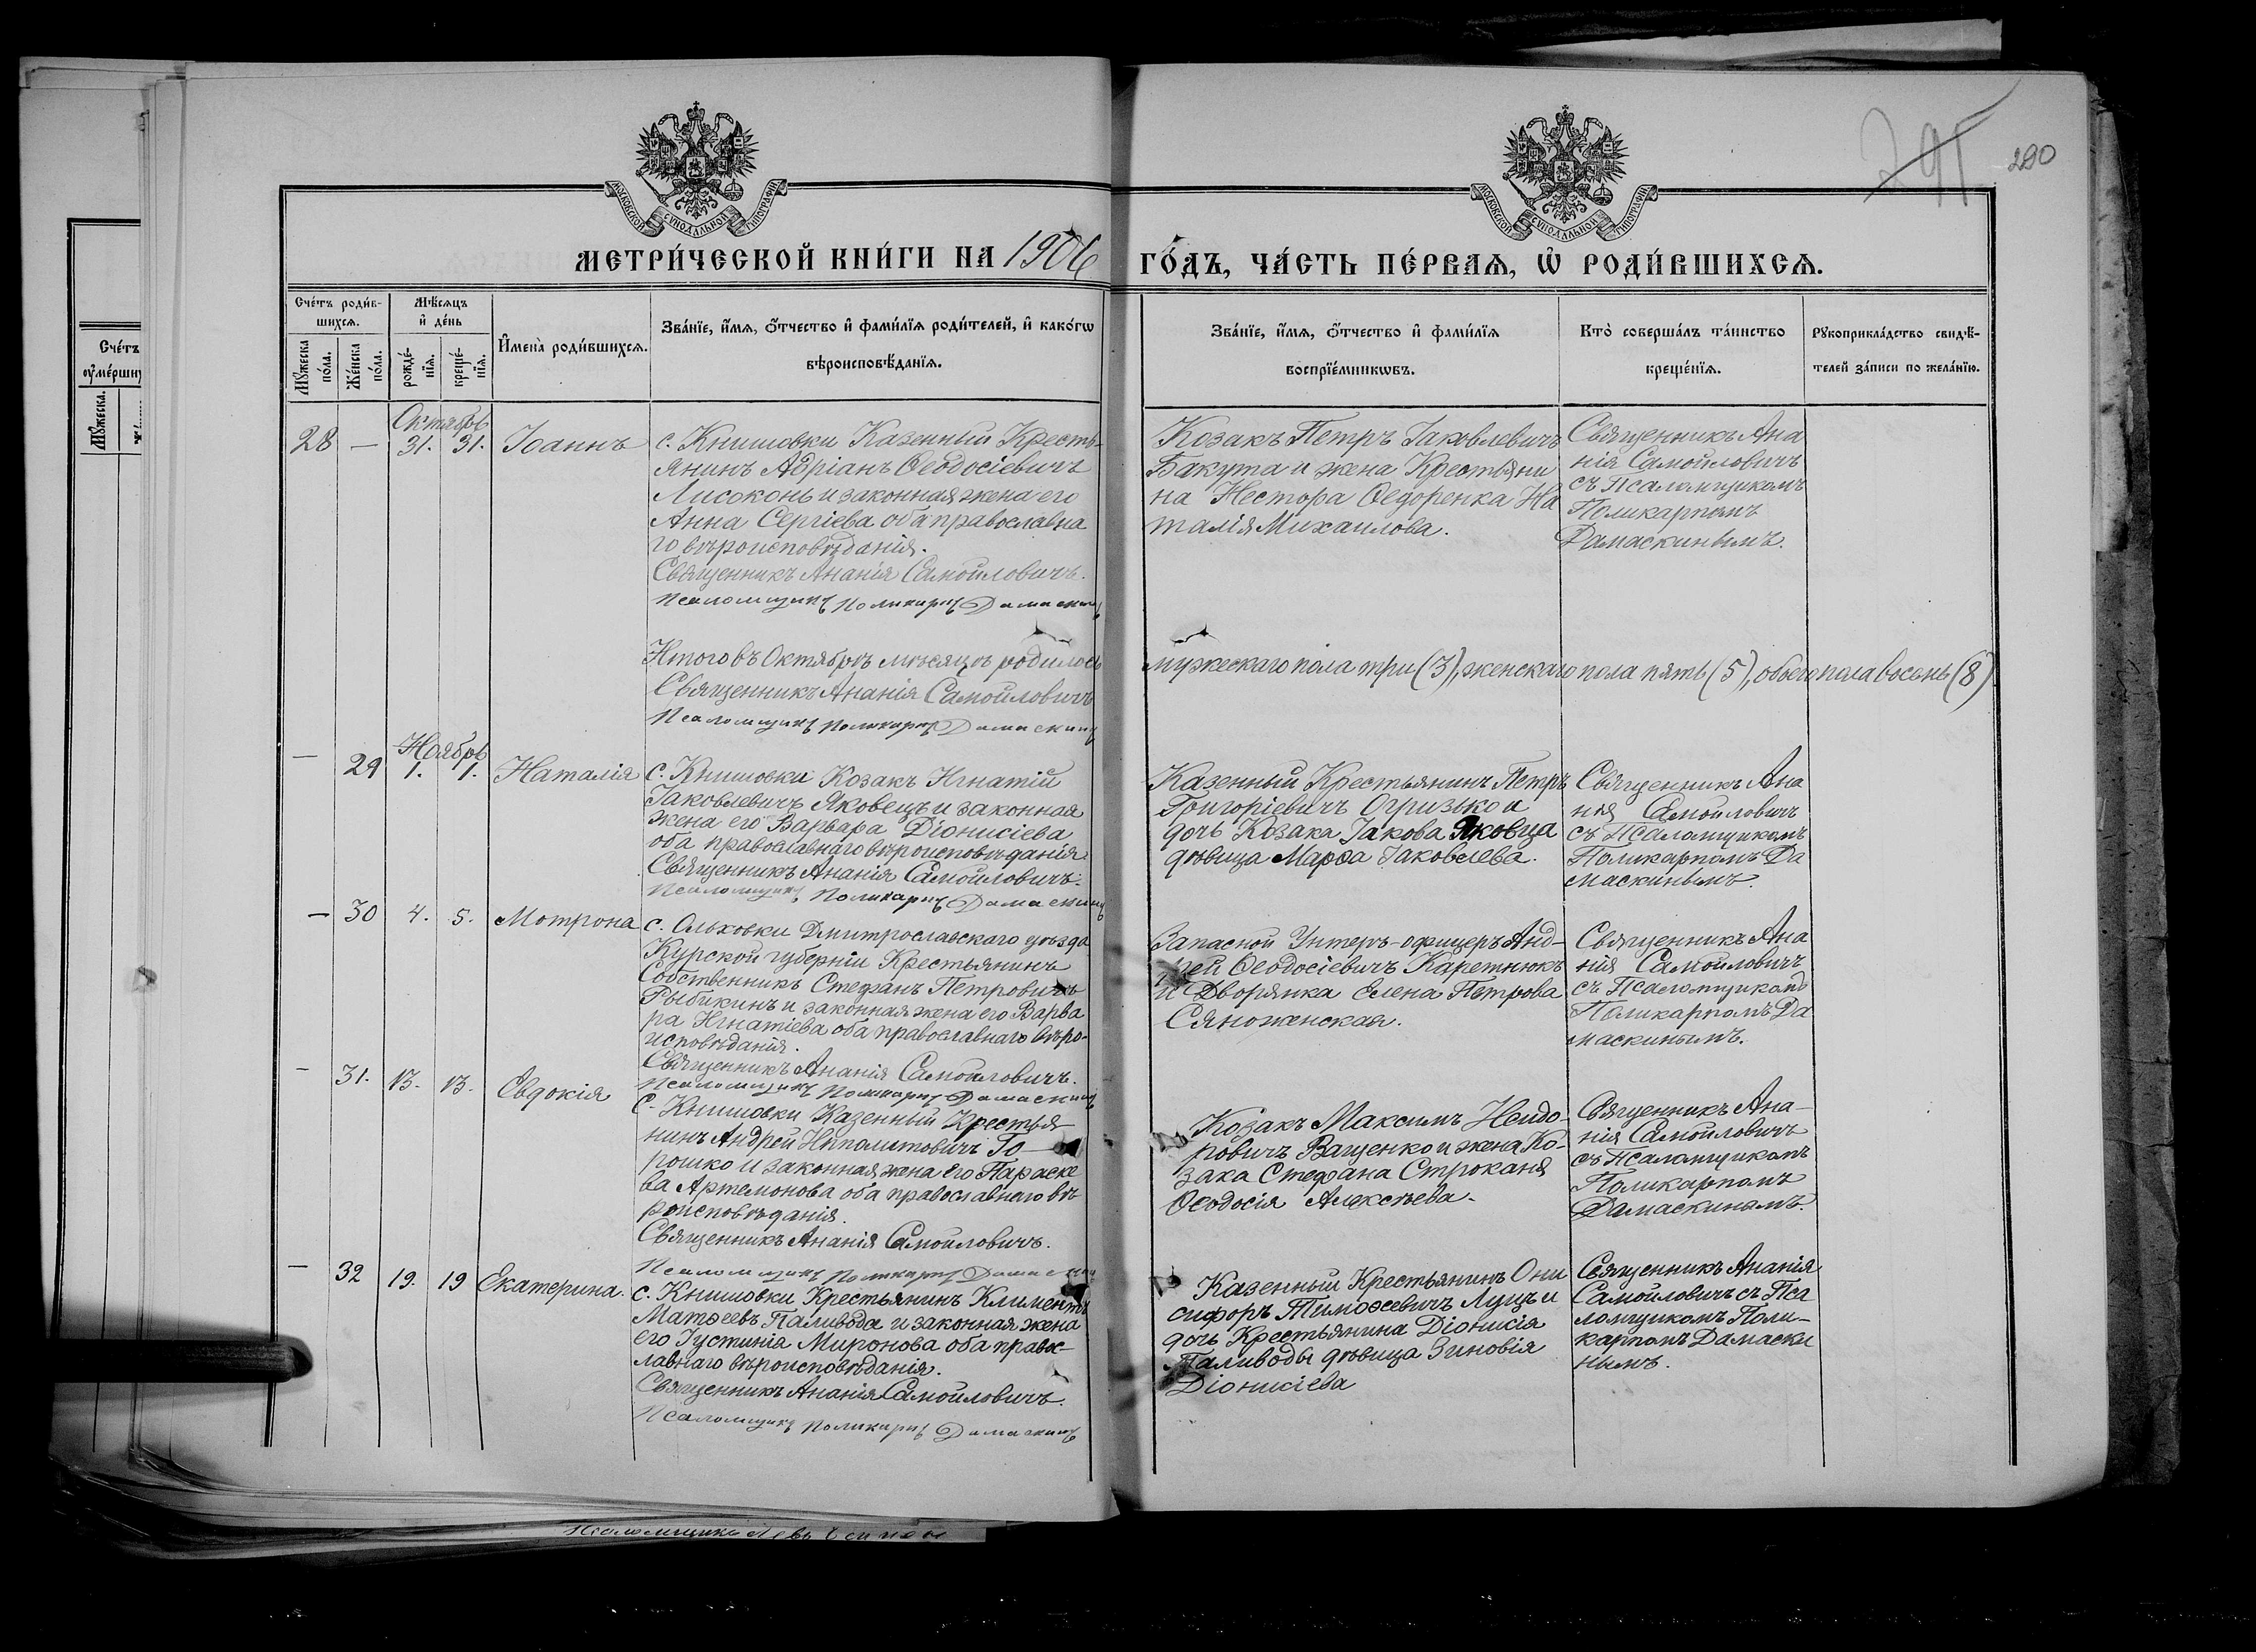 295
290
МОСКОВСКОЙ СѴНОДАЛЬНОЙ ТИПОГРАФІИ
МОСКОВСКОЙ СѴНОДАЛЬНОЙ ТИПОГРАФІИ
МЕТРИ́ЧЕСКОЙ КНИ́ГИ НА 1906 ГО́ДЪ, ЧА́СТЬ ПЕ́РВАѦ, Ѡ҆ РОДИ́ВШИХСѦ.
Сче́тъ роди́в-
шихсѧ.
Мꙋ́жеска
по́ла.
Же́нска
по́ла.
Мѣ́сѧцъ
и҆ де́нь
рожде́-
нїѧ.
креще́-
нїѧ.
И҆мена̀ роди́вшихсѧ.
Зва́нїе, и҆́мѧ, ѻ҆́тчество и҆ фами́лїѧ роди́телей, и҆ како́гѡ
вѣроисповѣ́данїѧ.
Зва́нїе, и҆́мѧ, ѻ҆́тчество и҆ фами́лїѧ
воспрїе́мникѡвъ.
Кто̀ соверша́лъ та́инство
креще́нїѧ.
Рꙋкоприкла́дство свидѣ́-
телей за́писи по жела́нїю.
Сче́тъ
ᲂу҆ме́рши
Мꙋ́жеска.
Октябрь
28 — 31. 31. Іоаннъ
с. Книшовки Казенный Кресть-
янинъ Адріанъ Ѳеодосіевичъ
Лисоконь и законная жена его
Анна Сергіева оба православна
го вѣроисповѣданія.
Священникъ Ананія Самойловичъ.
Псаломщикъ Поликарпъ Дамаскинъ
Козакъ Петръ Іаковлевичъ
Бакута и жена Крестьяни
на Нестора Ѳедоренка На
талія Михаилова.
Священникъ Ана
нія Самойловичъ
съ Псаломщикомъ
Поликарпомъ
Дамаскинымъ.
Итого въ Октябрѣ мѣсяцѣ родилось мужескаго пола три (3), женскаго пола пять (5), обоего пола восемь (8)
Священникъ Ананія Самойловичъ
Псаломщикъ Поликарпъ Дамаскинъ
Ноябрь
— 29 1. 1. Наталія
с. Книшовки Козакъ Игнатій
Іаковлевичъ Яковецъ и законная
жена его Варвара Діонисіева
оба православнаго вѣроисповѣданія
Священникъ Ананія Самойловичъ.
Псаломщикъ Поликарпъ Дамаскинъ
Казенный Крестьянинъ Петръ
Григоріевичъ Огризько и
дочь Козака Іакова Яковца
дѣвица Марѳа Іаковлева.
Священникъ Ана
нія Самойловичъ
съ Псаломщикомъ
Поликарпомъ Да
маскинымъ.
— 30 4. 5. Мотрона
с. Ольховки Дмитрославскаго уѣзда
Курской губерніи Крестьянинъ
Собственникъ Стефанъ Петровичъ
Рыбикинъ и законная жена его Варва
ра Игнатіева оба православнаго вѣро-
исповѣданія.
Священникъ Ананія Самойловичъ.
Псаломщикъ Поликарпъ Дамаскинъ
Запасной Унтеръ-офицеръ Анд-
рей Ѳеодосіевичъ Каретнюкъ
и Дворянка Елена Петрова
Сяноженская.
Священникъ Ана
нія Самойловичъ
съ Псаломщикомъ
Поликарпомъ Да
маскинымъ.
— 31. 13. 13. Евдокія
С. Книшовки Казенный Крестья-
нинъ Андрей Ипполитовичъ Го-
рошко и законная жена его Параске
ва Артемонова оба православнаго вѣ
роисповѣданія.
Священникъ Ананія Самойловичъ.
Псаломщикъ Поликарпъ Дамаскинъ
Козакъ Максимъ Исидо-
ровичъ Ващенко и жена Ко-
зака Стефана Строканя
Ѳеодосія Алексѣева.
Священникъ Ана-
нія Самойловичъ
съ Псаломщикомъ
Поликарпомъ
Дамаскинымъ.
— 32 19. 19 Екатерина.
с. Книшовки Крестьянинъ Климентъ
Матѳеевъ Паливода и законная жена
его Іустинія Миронова оба право-
славнаго вѣроисповѣданія.
Священникъ Ананія Самойловичъ.
Псаломщикъ Поликарпъ Дамаскинъ
Казенный Крестьянинъ Они
сифоръ Тимоѳеевичъ Луцъ и
дочь Крестьянина Діонисія
Паливоды дѣвица Зиновія
Діонисіева
Священникъ Ананія
Самойловичъ съ Пса-
ломщикомъ Поли-
карпомъ Дамаски
нымъ.
Псаломщикъ